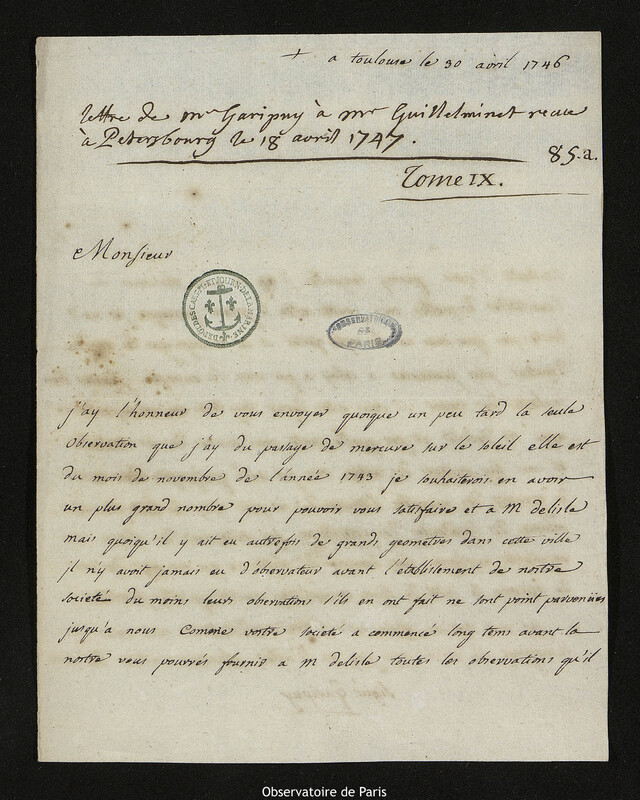 + a toulouse le 30 avril 1746
lettre de mr Garipuy à mr Guillelminet recue
à Petersbourg le 18 avril 1747.
85.a.
Tome IX.
Monsieur
DEPOT DES CARTES ET JOURN. DE LA MARINE
OBSERVATOIRE
DE
PARIS
j'ay l'honneur de vous envoyer quoique un peu tard la seule
observation que j'ay du passage de mercure sur le soleil elle est
du mois de novembre de l'année 1743 je souhaiterois en avoir
un plus grand nombre pour pouvoir vous satisfaire et a M delisle
mais quoiqu'il y ait eu autrefois de grands geometres dans cette ville
il n'y avoit jamais eu d'observateur avant l'établissement de nostre
societé du moins leurs observation s'ils en ont fait ne sont point parvenües
jusqu'a nous Comme vostre societé a commencé long tems avant la
nostre vous pourrés fournir a m delisle toutes les observations qu'il
Observatoire de Paris